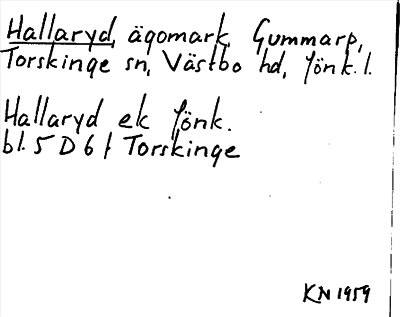 Hallaryd, ägomark, Gummarp,
Torskinge sn, Västbo hd, Jönk. l.
Hallaryd ek Jönk.
bl. 5 D 6 f Torskinge
KN 1959